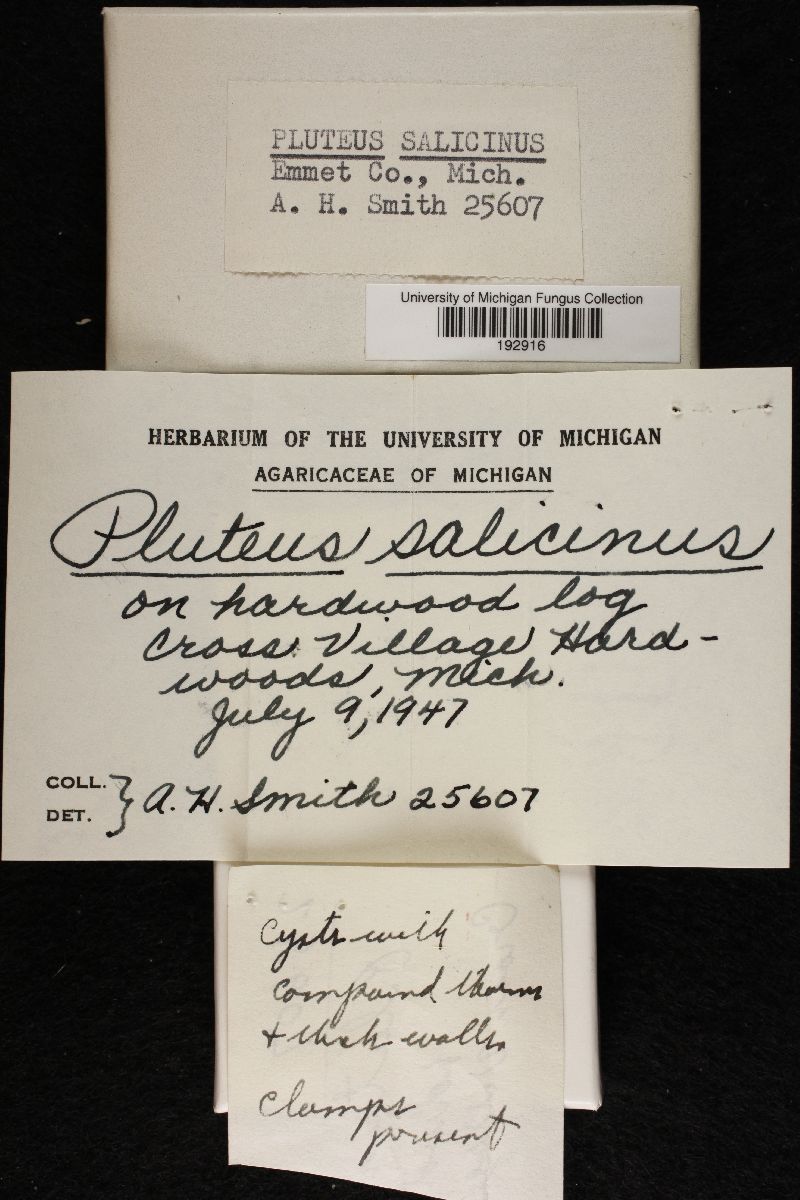 PLUTEUS SALICINUS
Emmet Co., Mich.
A. H. Smith 25607
University of Michigan Fungus Collection
192916
HERBARIUM OF THE UNIVERSITY OF MICHIGAN
AGARICACEAE OF MICHIGAN
Pluteus salicinus
on hardwood log
Cross Village Hard-
woods, Mich.
July 9, 1947
COLL.
DET. } A. H. Smith 25607
Cysts with
compound thorns
+ thick walls.
Clamps
present